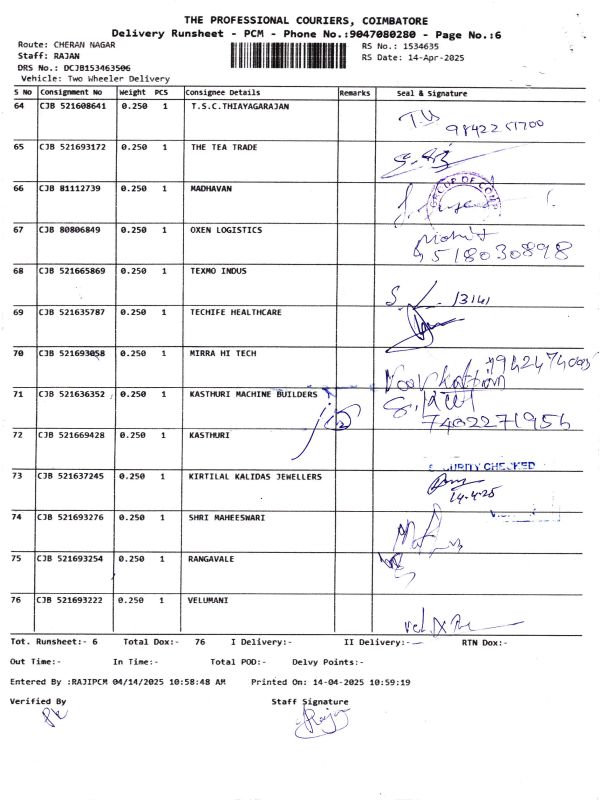 THE PROFESSIONAL COURIERS, COIMBATORE
Delivery Runsheet - PCM - Phone No.:9047080280 - Page No.:6
Route: CHERAN NAGAR RS No.: 1534635
Staff: RAJAN RS Date: 14-Apr-2025
DRS No.: DCJB153463506
Vehicle: Two Wheeler Delivery
S No Consignment No Weight PCS Consignee Details Remarks Seal & Signature
64 CJB 521608641 0.250 1 T.S.C.THIAYAGARAJAN
65 CJB 521693172 0.250 1 THE TEA TRADE
66 CJB 81112739 0.250 1 MADHAVAN
GROUP OF COMP
67 CJB 80806849 0.250 1 OXEN LOGISTICS Mohit
9518030898
68 CJB 521665869 0.250 1 TEXMO INDUS 13141
69 CJB 521635787 0.250 1 TECHIFE HEALTHCARE
70 CJB 521693058 0.250 1 MIRRA HI TECH
71 CJB 521636352 0.250 1 KASTHURI MACHINE BUILDERS
7402271956
72 CJB 521669428 0.250 1 KASTHURI
SECURITY CHECKED
73 CJB 521637245 0.250 1 KIRTILAL KALIDAS JEWELLERS
14-4-25
74 CJB 521693276 0.250 1 SHRI MAHEESWARI
75 CJB 521693254 0.250 1 RANGAVALE
76 CJB 521693222 0.250 1 VELUMANI
Tot. Runsheet:- 6 Total Dox:- 76 I Delivery:- II Delivery:- RTN Dox:-
Out Time:- In Time:- Total POD:- Delvy Points:-
Entered By :RAJIPCM 04/14/2025 10:58:48 AM Printed On: 14-04-2025 10:59:19
Verified By Staff Signature
Rajan